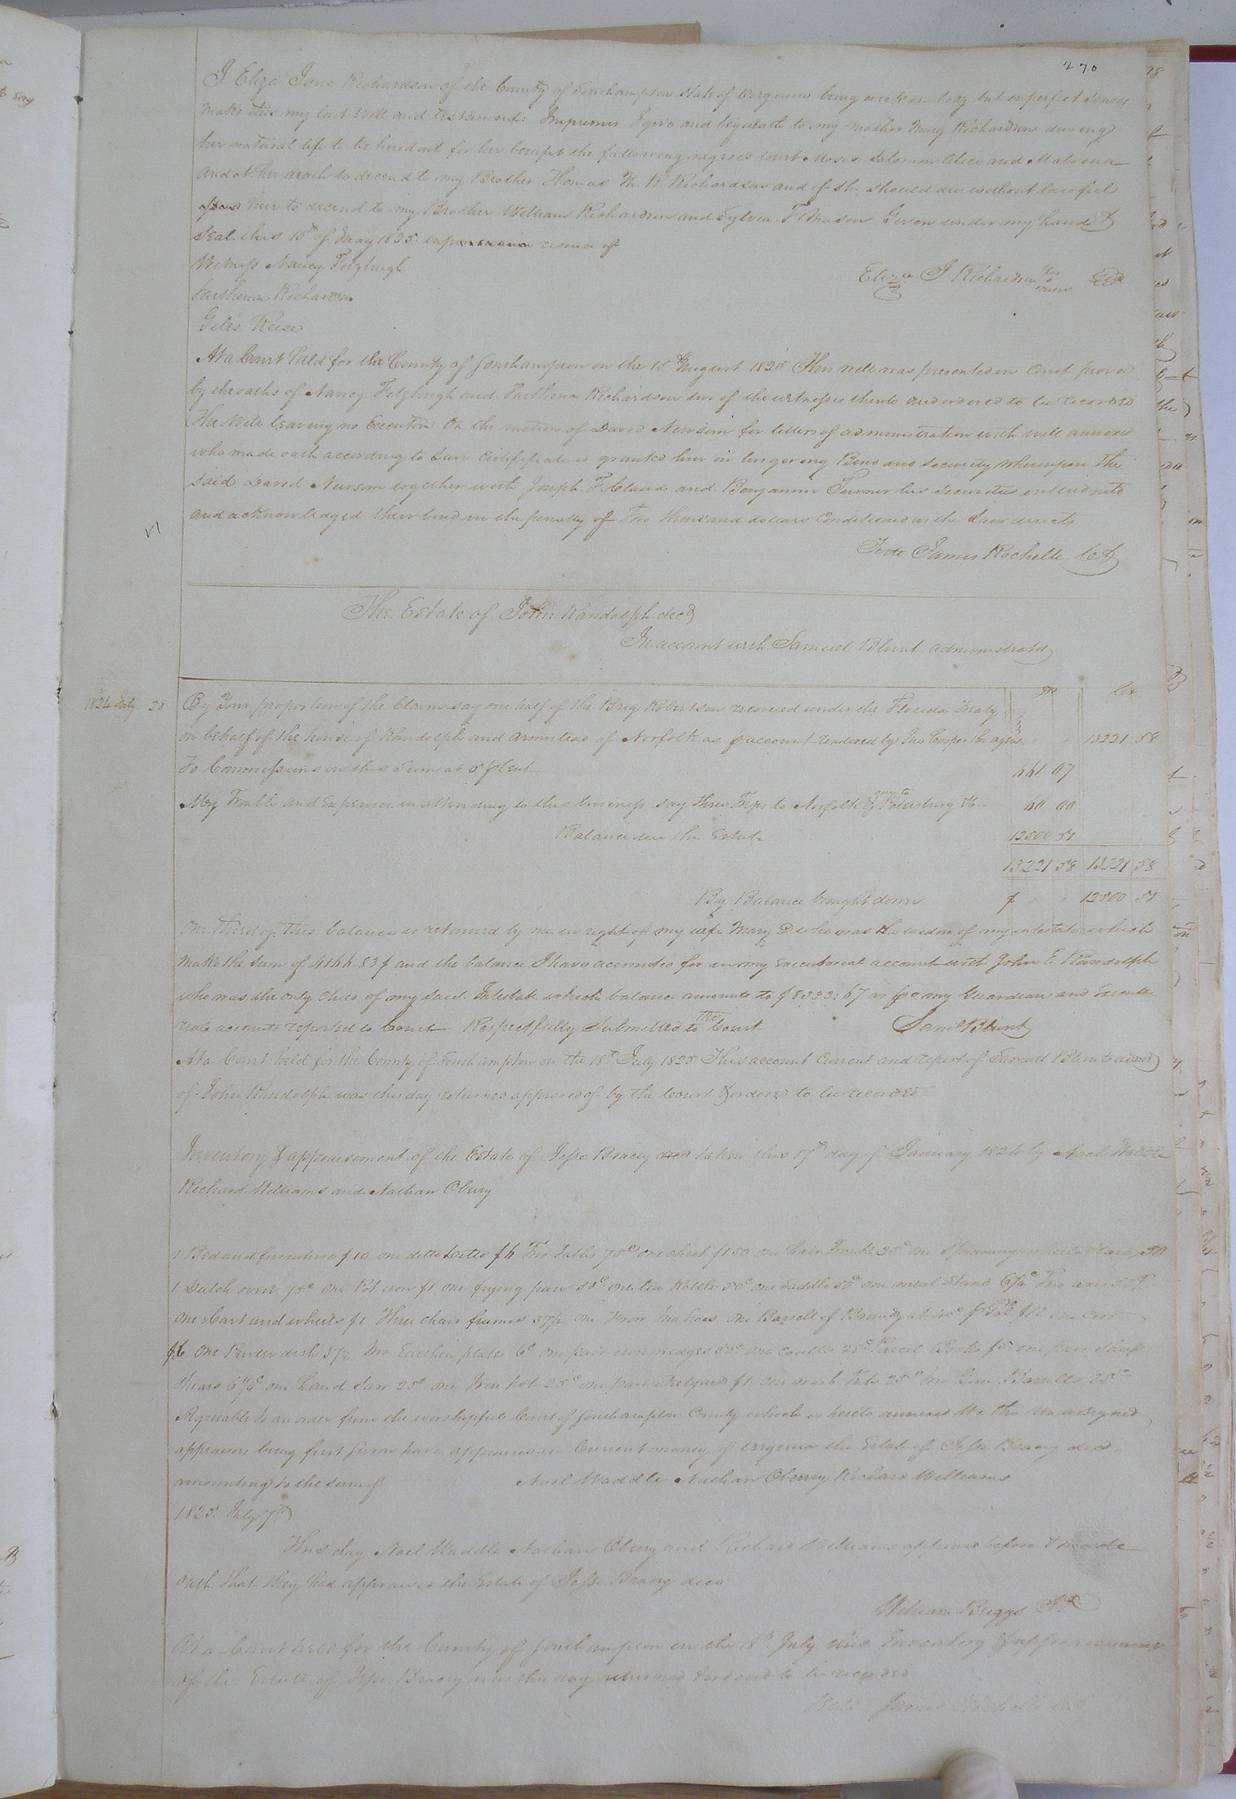 270
I Eliza Jane Richardson of the County of Southampton State of Virginia being weak in body but in perfect senses
make this my last will and testament. Imprimis I give and bequeath to my mother Mary Richardson during
her natural life to be hired out for her benefit the following negroes Moses Solomon Alice and Malvina
and at her death to decend to my Brother Thomas Richardson and if he should die without lawful
heir to decend to my Brother William Richardson and Sylvia F. Mason Given under my hand &
Seal this 10th of May 1825
Witness Nancy Fitzhugh
Eliza J Richardson her mark Seal
Parthena Richardson
Giles Reese
At a Court held for the County of Southampton on the 15th August 1825 This will was presented in Court proved
by the oaths of Nancy Fitzhugh and Parthena Richardson two of the witnesses thereto and ordered to be recorded
The Will leaving no Executor On the motion of David Newsom for letters of administration with will annexed
who made oath according to Law Certificate is granted him on his giving Bond and Security whereupon the
said David Newsom together with Joseph T. Claud and Benjamin Turner his Securities entered into
and acknowledged their bond in the penalty of Two thousand dollars Conditioned as the Law directs
Teste James Rochelle C.S.
The Estate of John Randolph decd
In account with Samuel Blunt administrator
Dr Cr
1824 July 28 By your proportion of the Claims say one half of the Brig Robertson received under the Florida Treaty
on behalf of the heirs of Randolph and Armistead of Norfolk as pr account rendered by the agent 13221 58
To Commissions on this Sum at 5 pr Cent 661 07
My Trouble and Expences in attending to this business say three Trips to Norfolk & one to Petersburg &c 60 00
Balance due the Estate 12500 51
13221 58 13221 58
By Balance brought down $ 12500 51
One third of this balance is retained by me in right of my wife Mary who was the widow of my intestate which
make the sum of 4166 83 $ and the balance I have accounted for in my account with John E. Randolph
who was the only child of my said Intestate which balance amounts to $8333:67 as pr my Guardian and
accounts reported to Court Respectfully Submitted to the Court Saml Blunt
At a Court held for the County of Southampton on the 18th July 1825 This account Current and report of Samuel Blunt admr
of John Randolph was this day returned approved of by the Court & ordered to be recorded
Inventory & appraisement of the Estate of Jesse Bracey decd taken this 17th day of January 1824 by Noel Waddle
Richard Williams and Nathan Oberry
1 Bed and furniture $10 one ditto ditto $6 Two Tables 75c one chest $1 50 one Trunk 25c one Spinning wheel
1 Dutch oven 75c one Pot $1 one frying pan 50c one tea Kettle 50c one saddle 50c one meal stand 6¼c Two axes
One Cart and wheels Three chair frames 37½ one Barrell of Brandy
$6 One Pewter dish 37½ two Earthen plates 6c one pair iron wedges 50c one coulter 25c Parcel Books one pair Sheep
Shears 6¼c one hand Saw 25c one Iron Pot 25c one pair Stilyards $1 one wash Tub 25c two Gun Barrells 25c
Agreeable to an order from the worshipful Court of Southampton County which is hereto annexed We the undersigned
appraisers being first Sworn have appraised in Current money of Virginia the Estate of Jesse Bracey decd
amounting to the sum of Noel Waddle Nathan Oberry Richard Williams
1825 July 7th
This day Noel Waddle Nathan Oberry and Richard Williams appeared before & made
oath that they had appraised the Estate of Jesse Bracey decd
William Briggs J.P.
At a Court held for the County of Southampton on the 18th July this Inventory & appraisement
of the Estate of Jesse Bracey was this day returned & ordered to be recorded
Teste James Rochelle